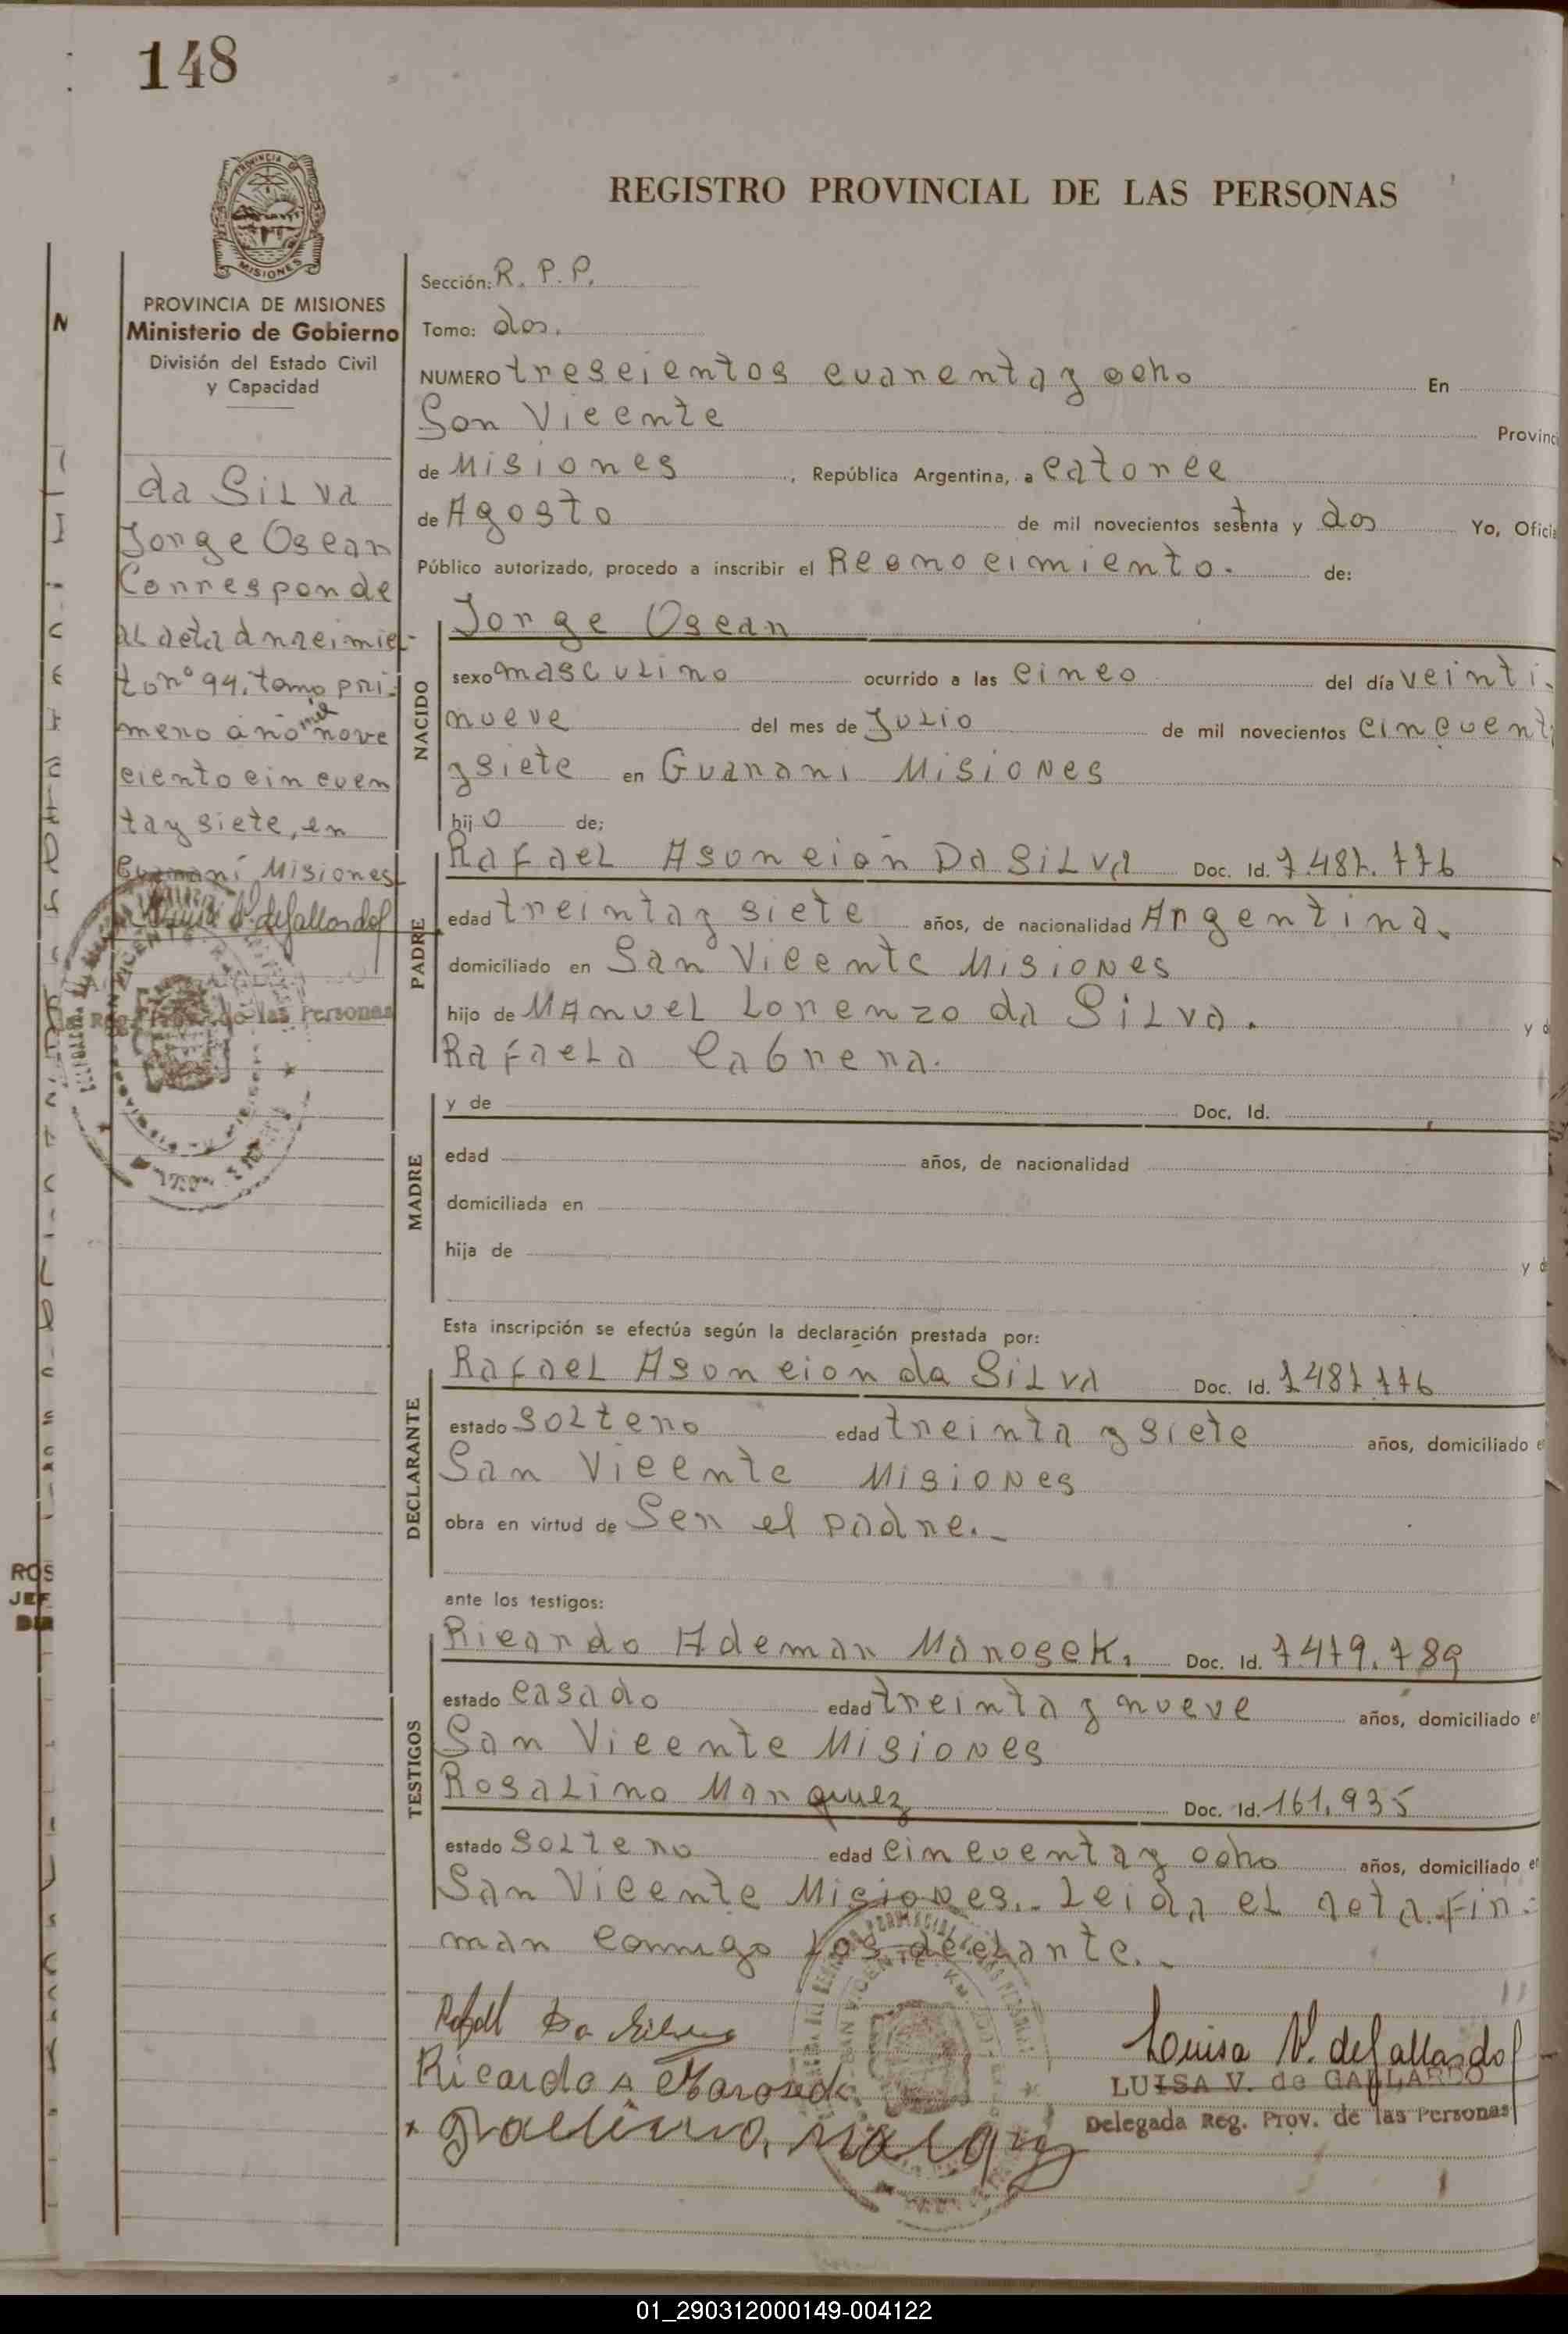 148
PROVINCIA DE
MISIONES
REGISTRO PROVINCIAL DE LAS PERSONAS
PROVINCIA DE MISIONES
Ministerio de Gobierno
División del Estado Civil
y Capacidad
da Silva
Jorge Oscar
Corresponde
al acta d nacimien-
to nº 94, tomo pri-
mero año mil nove
ciento cincuen
tay siete, en
Guaraní Misiones
Luisa V. de Gallardo
Reg. Prov. de las Personas
Sección: R. P. P.
Tomo: dos.
NUMERO trescientos cuarenta y ocho En
San Vicente Provinci
de Misiones, República Argentina, a catorce
de Agosto de mil novecientos setenta y dos Yo, Oficia
Público autorizado, procedo a inscribir el Reconocimiento. de:
NACIDO
Jorge Oscar
sexo masculino ocurrido a las cinco del día veinti-
nueve del mes de Julio de mil novecientos cincuent
y siete en Guarani Misiones
hijo de:
PADRE
Rafael Asuncion Da Silva Doc. Id. 7.487.776
edad treinta y siete años, de nacionalidad Argentina.
domiciliado en San Vicente Misiones
hijo de Manuel Lorenzo da Silva. y d
Rafaela Cabrera.
MADRE
y de Doc. Id.
edad años, de nacionalidad
domiciliada en
hija de y d
Esta inscripción se efectúa según la declaración prestada por:
DECLARANTE
Rafael Asuncion da Silva Doc. Id. 7487.776
estado soltero edad treinta y siete años, domiciliado e
San Vicente Misiones
obra en virtud de Ser el padre.-
ante los testigos:
TESTIGOS
Ricardo Ademar Marosek. Doc. Id. 7.479.789
estado casado edad treinta y nueve años, domiciliado en
San Vicente Misiones
Rosalino Marquez Doc. Id. 161.935
estado soltero edad cincuenta y ocho años, domiciliado en
San Vicente Misiones.. Leida el acta. Fir-
man conmigo los declante..
Rafael Da Silva
Ricardo A Marosek
Luisa V. de Gallardo
LUISA V. de GALLARDO
Delegada Reg. Prov. de las Personas
ROS
JEF
01_290312000149-004122